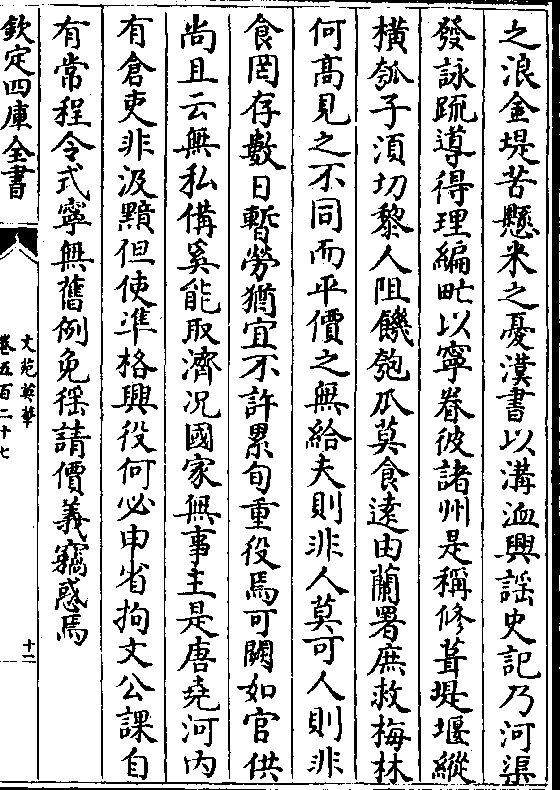 之浪金堤苦懸米之憂漢書以溝洫興謡史記乃河渠
發詠疏導得理編甿以寧眷彼諸州是稱修葺堤堰縱
横瓠子湏切黎人阻饑匏瓜莫食逺由蘭署庶救梅林
何髙見之不同而平價之無給夫則非人莫可人則非
食罔存數日暫勞猶宜不許累旬重役焉可闕如官供
尚且云無私備奚能取濟况國家無事主是唐堯河内
有倉吏非汲黯但使準格興役何必申省拘文公課自
有常程令式寧無舊例免徭請價義竊惑焉
欽定四庫全書
文苑英華
卷五百二十七
十二